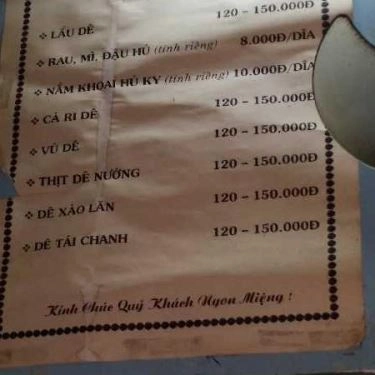 120 – 150.000Đ
❖ LẨU DÊ 120 – 150.000Đ
❖ RAU, MÌ, ĐẬU HỦ (tính riêng) 8.000Đ/DĨA
❖ NẤM KHOAI HỦ KY (tính riêng) 10.000Đ/DĨA
❖ CÀ RI DÊ 120 – 150.000Đ
❖ VÚ DÊ 120 – 150.000Đ
❖ THỊT DÊ NƯỚNG 120 – 150.000Đ
❖ DÊ XÀO LĂN 120 – 150.000Đ
❖ DÊ TÁI CHANH 120 – 150.000Đ
Kính Chúc Quý Khách Ngon Miệng !